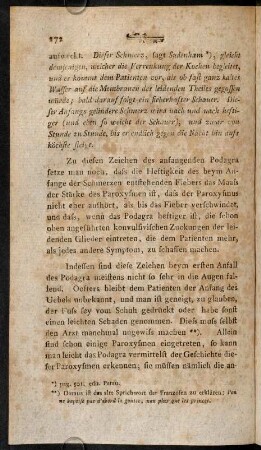 172
aufweckt. Dieser Schmerz, sagt Sydenham *), gleicht
demjenigen, welcher die Verrenkung der Knochen begleitet,
und es kommt dem Patienten vor, als ob fast ganz kaltes
Wasser auf die Membranen des leidenden Theiles gegossen
würde; bald darauf folgt ein fieberhafter Schauer. Die-
ser Anfangs gelindere Schmerz wird nach und nach hefti-
ger (und eben so weicht der Schauer), und zwar von
Stunde zu Stunde, bis er endlich gegen die Nacht hin aufs
höchste steigt.
Zu diesen Zeichen der anfangenden Podagra
setze man noch, dass die Heftigkeit des beym An-
fange der Schmerzen entstehenden Fiebers das Maass
der Stärke des Paroxysmus ist, dass der Paroxysmus
nicht eher aufhört, als bis das Fieber verschwindet,
und dass, wenn das Podagra heftiger ist, die schon
oben angeführten konvulsivischen Zuckungen der lei-
denden Glieder eintreten, die dem Patienten mehr,
als jedes andere Symptom, zu schaffen machen.
Indessen sind diese Zeichen beym ersten Anfall
des Podagra meistens nicht so sehr in die Augen fal-
lend. Oefters bleibt dem Patienten der Anfang des
Uebels unbekannt, und man ist geneigt, zu glauben,
der Fuss sey vom Schuh gedrückt oder habe sonst
einen leichten Schaden genommen. Diess muss selbst
den Arzt manchmal ungewiss machen **). Allein
sind schon einige Paroxysmen eingetreten, so kann
man leicht das Podagra vermittelst der Geschichte die-
ser Paroxysmen erkennen; sie müssen nämlich die an-
*) pag. 301. edit. Patav.
**) Daraus ist das alte Sprichwort der Franzosen zu erklären: